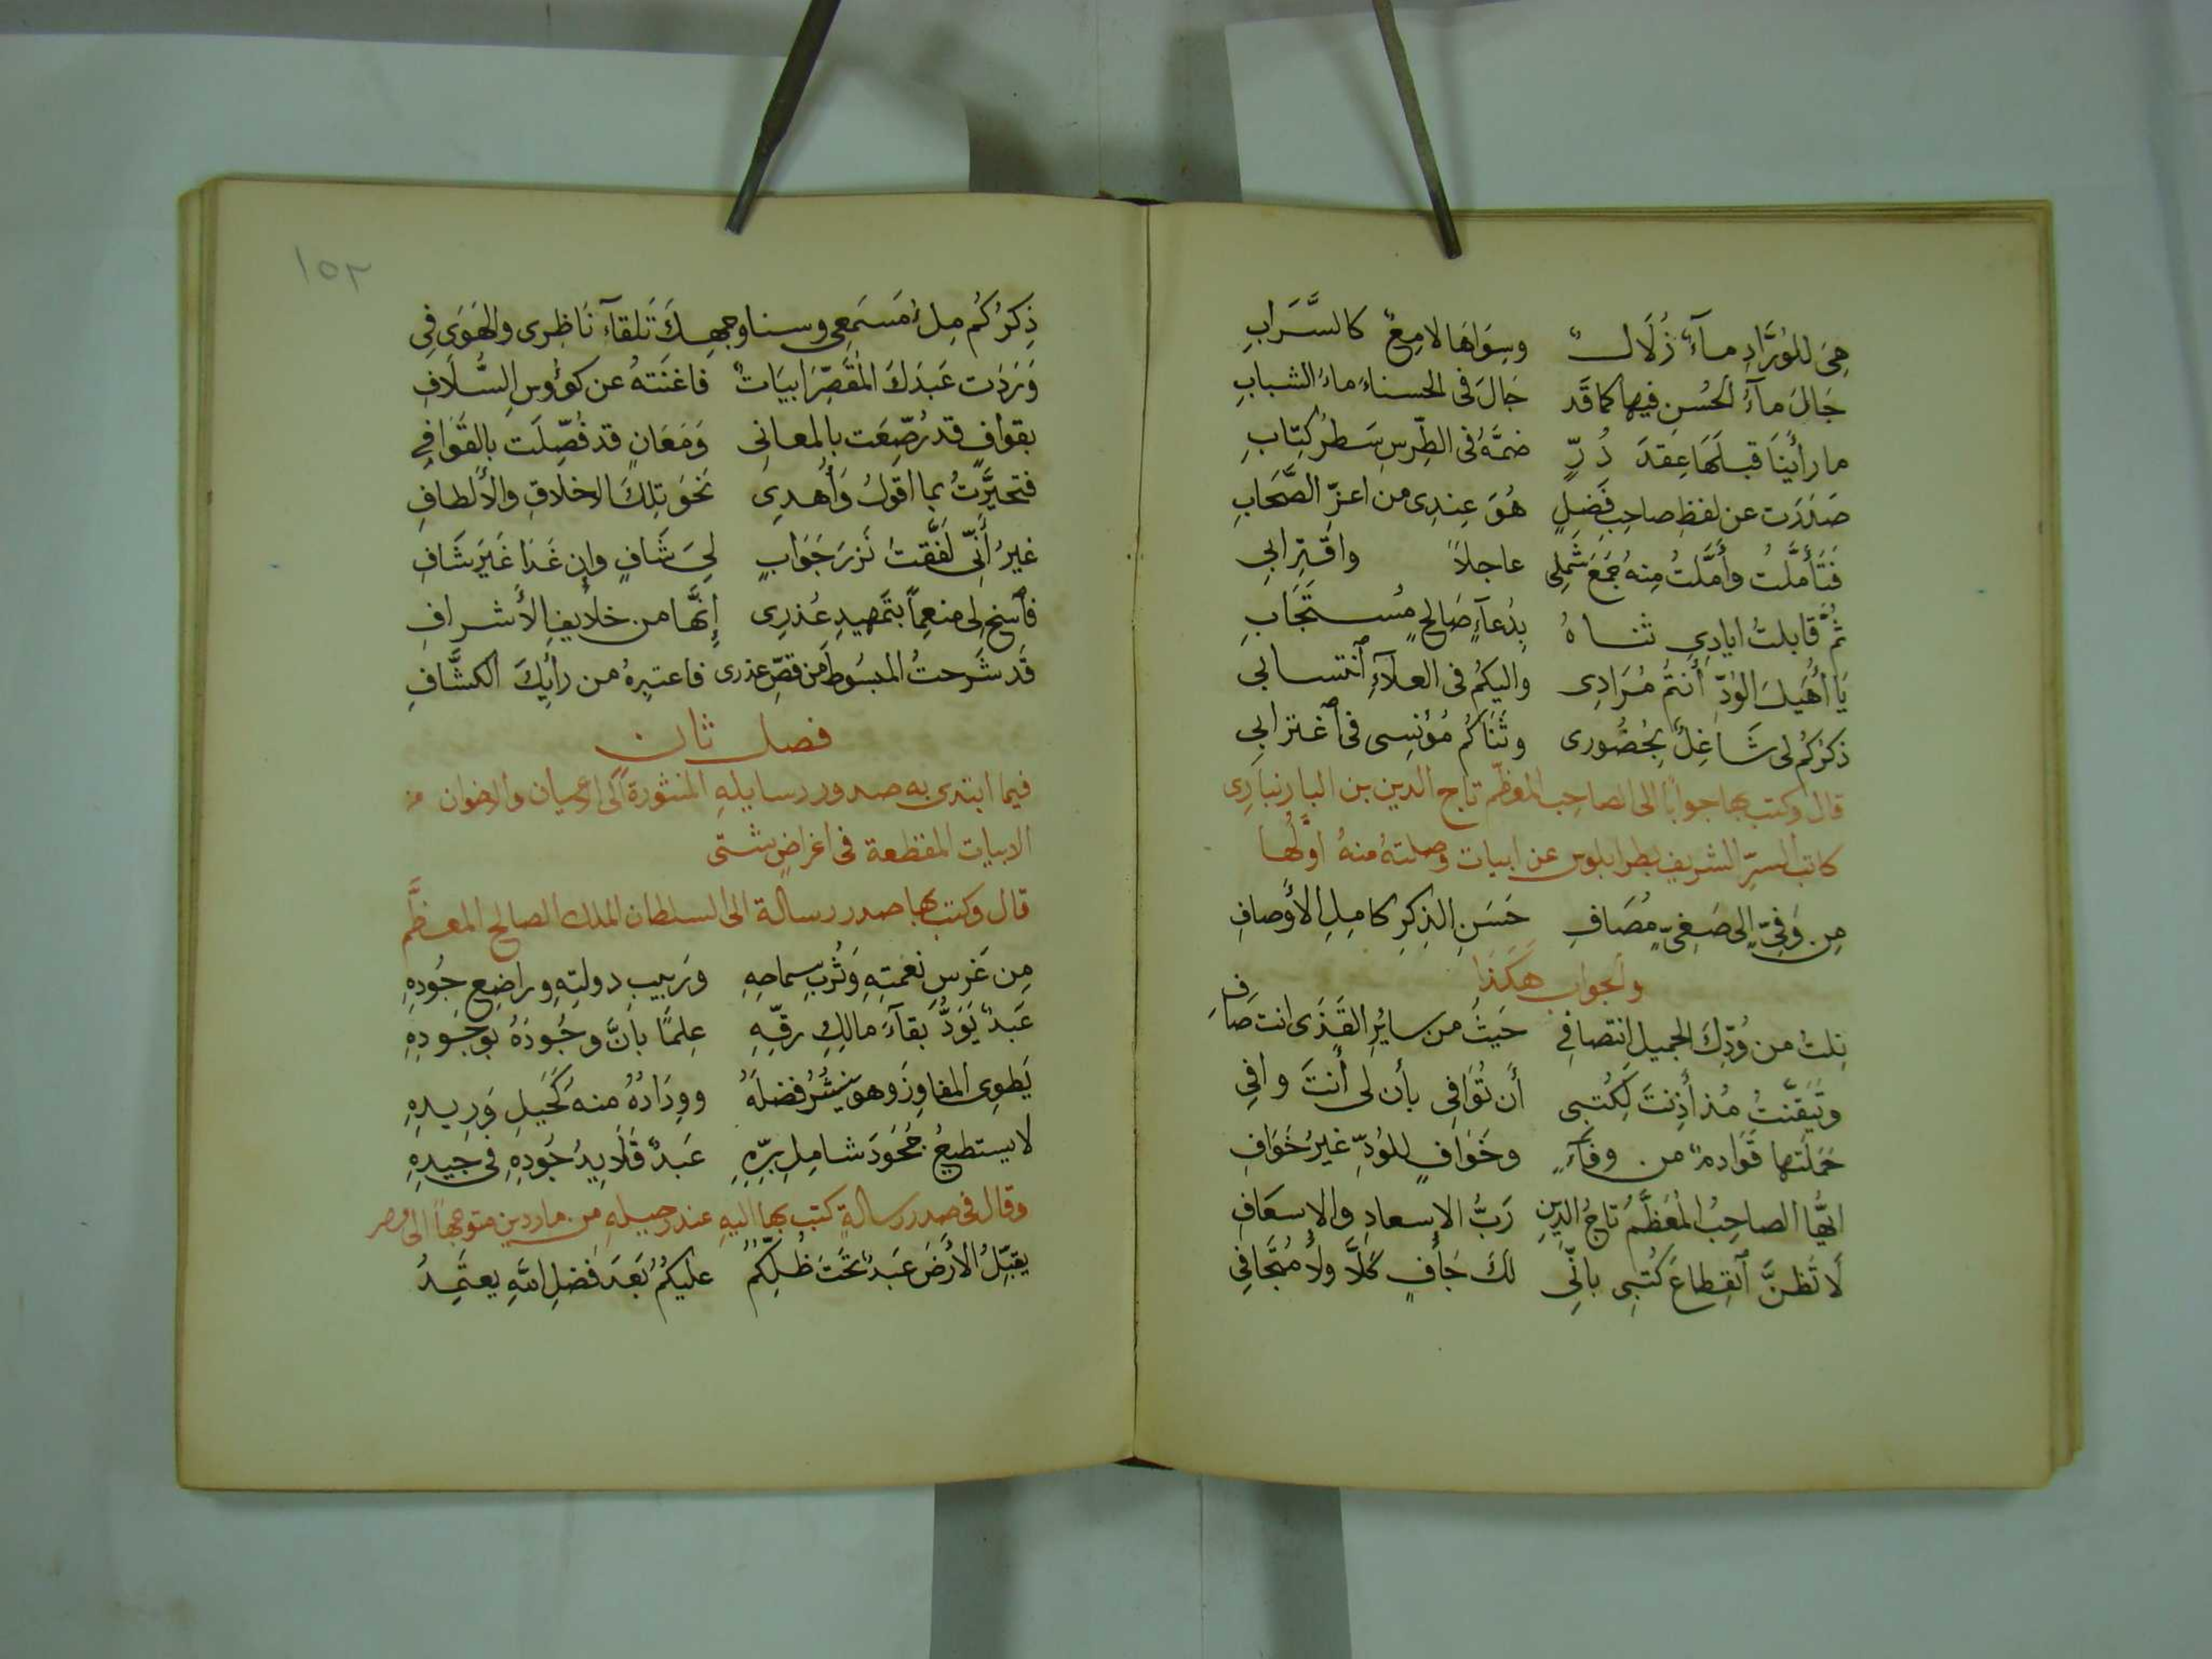 هِيَ للوُرَّادِ مآءٌ زُلَالٌ وسِوَاهَا لامِعٌ كالسَّرَابِ
جَالَ مآءُ الحُسنِ فيها كما قَد جَالَ فى الحسناءِ ماءُ الشبابِ
ما رأينَا قبلَهَا عِقدَ دُرٍّ ضمَّهُ فى الطِّرسِ سَطرُ كِتابِ
صَدَرَت عن لفظِ صاحِبِ فَضلٍ هُوَ عِندِى من اعزِّ الصَّحَابِ
فَتَأَمَّلتُ وأَمَّلتُ مِنهُ جَمعَ شَملِى عاجلاً واقتِرابي
ثُمَّ قابلتُ ايادِي ثناهُ بِدُعآءٍ صَالحٍ مُستَجَابِ
يَا أُهَيلَ الوُدِّ أَنتُم مُرَادِى واليكُم فى العلآءِ ٱنتسابي
ذكرُكُم لى شَاغِلٌ بحُضُورى وثَنَاكُم مُؤنِسِى فى ٱغترابي
قال وكتب بها جوابًا الى الصاحِب المعظّم تاج الدين بن البارنبارِى
كاتب السرِّ الشريف بطرابلوس عن ابيات وصلتهُ منهُ اوَّلُها
مِن وَفِيٍّ إلى صَفِيٍّ مُصَافِ حَسَنِ الذِكرِ كامِلِ الأَوصافِ
والجواب هَكَذَا
نِلتُ من وُدِّكَ الجميلِ انتصافِي حَيثُ من سائِرِ القَذَى انت صَافِ
وتَيَقَّنتُ مُذ أَذِنتَ لِكُتبِى أَن تُوَافِى بأن لى أنتَ وافِي
حَمَلَتها قَوَادمٌ من وفآءٍ وخَوَافٍ للوُدِّ غيرُ خَوَافِ
ايُّها الصاحِبُ المُعَظَّمُ تاجُ الدِينِ رَبُّ الإسعادِ والإسعَافِ
لَا تَظنَّ ٱنقِطاعَ كُتبِى بانِّى لكَ جَافٍ كَلَّا ولا مُتجَافِي
١٥٢
ذِكرُكُم مِلءُ مَسمَعِى وسنا وجهِكَ تَلقآءَ نَاظِرِى والهَوَى فِي
وَرَدَت عَبدَكَ المُقَصِّرَ ابيَاتٌ فاغنَتهُ عن كوؤُسِ السُّلَافِ
بقوافٍ قد رُصِّعَت بالمعانى وَمَعَانٍ قد فُصِّلَت بالقَوَافِي
فتحيَّرتُ بما اقولُ وَأُهدِى نَحوَ تِلكَ الاخلاقِ والأَلطافِ
غيرُ أَنِّى لَفَّقتُ نَزرَ جَوَابٍ لِيَ شَافٍ وإن غَدَا غَيرَ شَافِ
فٱسخ لى منعِمًا بتَمهيدِ عُذرِى إنَّها من خلايفِ الأَشرافِ
قَد شَرحتُ المبسُوطَ من قصِّ عذرى فاعتبِرهُ من رأيِكَ الكشَّافِ
فصل ثان
فيما ابتدى به صدور رسايلهِ المنثورة الى الاعيان والاخوان من
الابيات المقطعة فى اغراضٍ شتى
قال وكتب بها صدر رسالة الى السلطان الملك الصالح المعظَّم
مِن غَرسِ نعمتِهِ وَتُربِ سماحِهِ ورَبيبِ دولتِهِ وراضِعِ جُودِهِ
عَبدٌ يَوَدُّ بقآءَ مالكِ رقّهِ عِلمًا بأنَّ وجُودَهُ بوجودِهِ
يَطوِى المفاوِزَ وهو يَنشُرُ فضلَهُ ووِدَادُهُ منهُ كَحَبلِ وَرِيدِهِ
لا يستطيعُ جُحودَ شامِلِ برِّهِ عَبدٌ قَلَايِدُ جُودِهِ فى جِيدِهِ
وقال فى صدر رسالةٍ كتب بها اليهِ عند رحيلهِ من ماردين متوجهًا الى مصر
يقبِّلُ الأَرضَ عَبدٌ تَحتَ ظُلِّكُم عليكُمُ بَعدَ فَضلِ اللهِ يعتَمِدُ